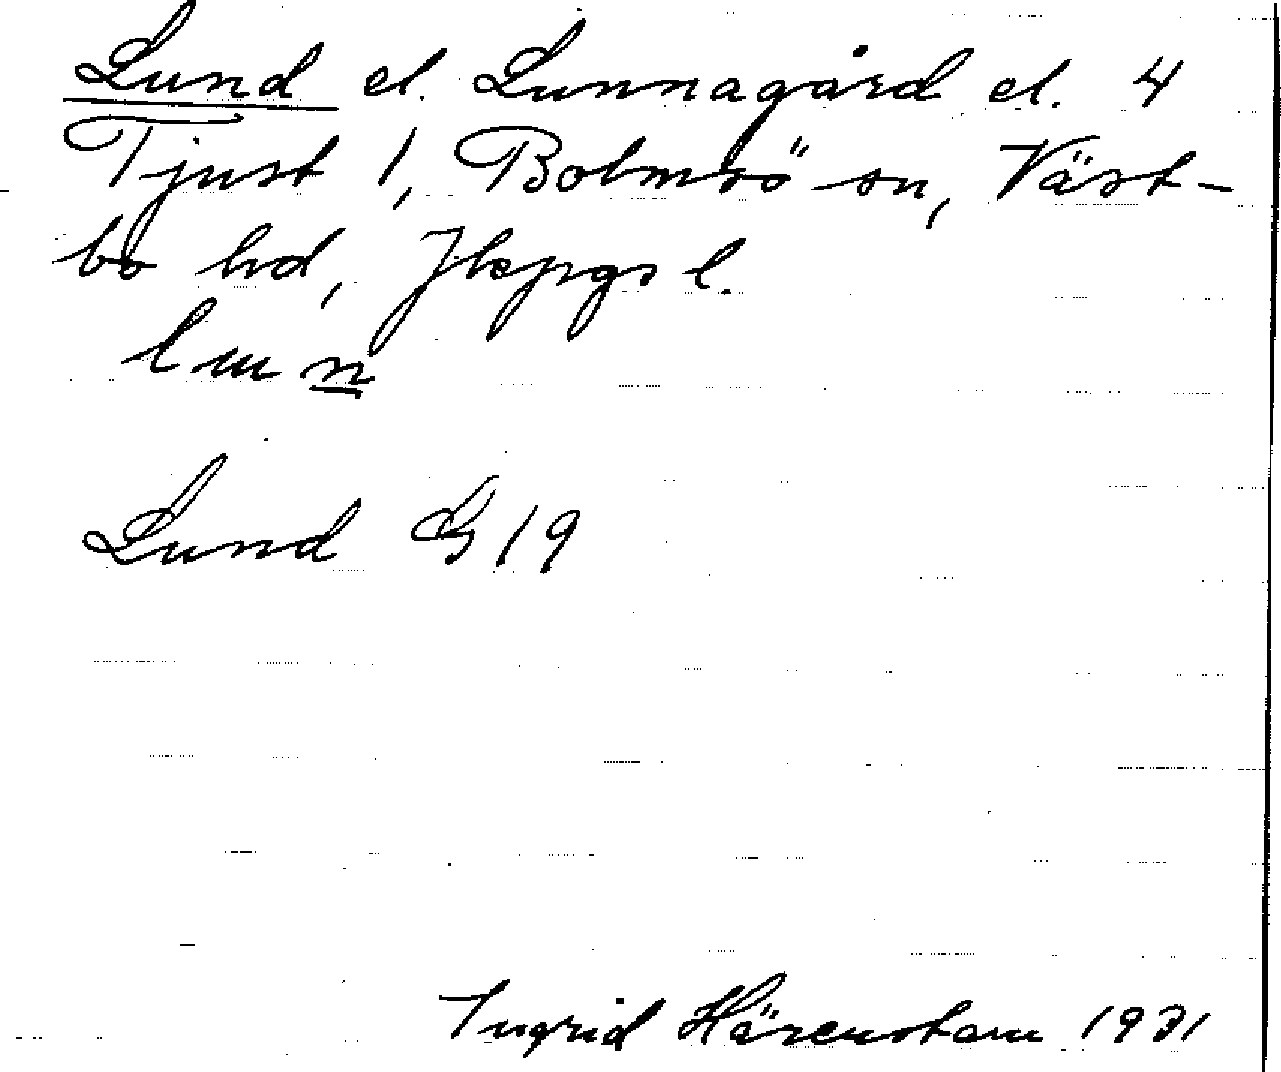 Lund el. Lunnagård el. 4
Tjust 1, Bolmsö sn, Väst-
bo hd, Jkpgs l.
lun n
Lund G 19
Ingrid Härenstam 1931